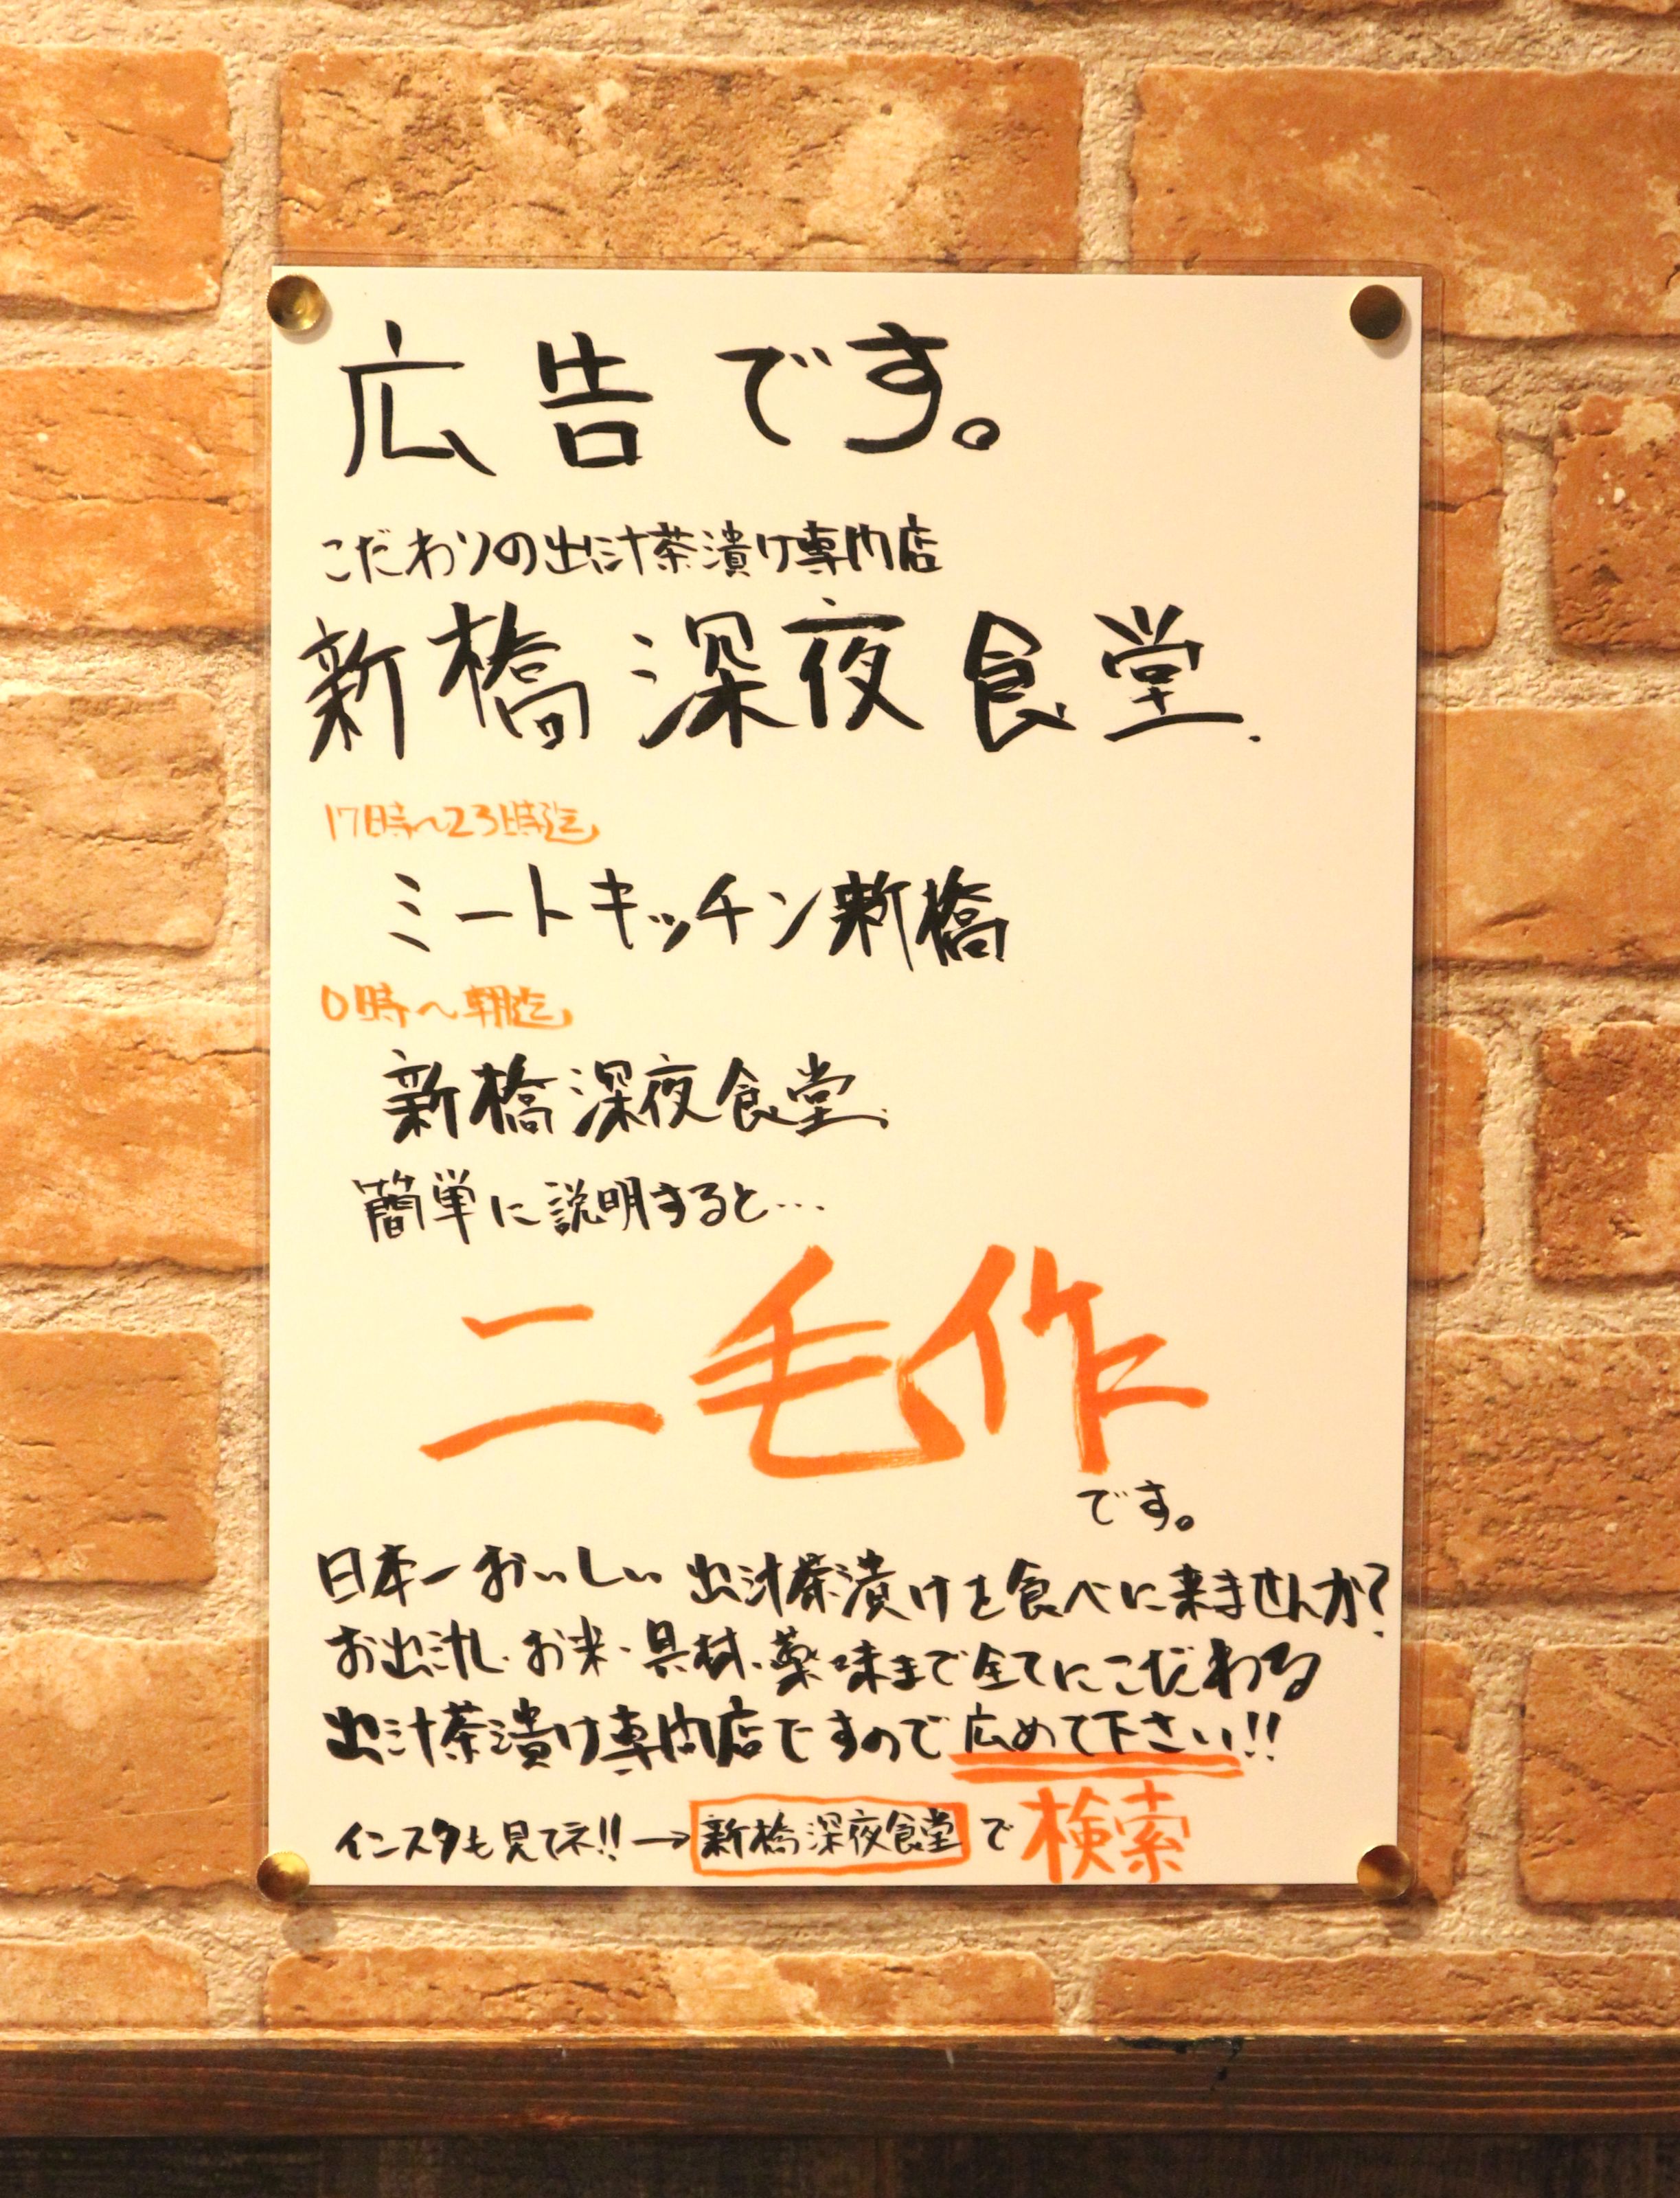 広告です。
こだわりの出汁茶漬け専門店
新橋深夜食堂.
17時〜23時迄
ミートキッチン新橋
0時〜朝迄
新橋深夜食堂.
簡単に説明すると…
二毛作
です。
日本一おいしい出汁茶漬けを食べに来ませんか?
お出汁・お米・具材・薬味まで全てにこだわる
出汁茶漬け専門店ですので広めて下さい!!
インスタも見てネ!!→新橋深夜食堂で検索